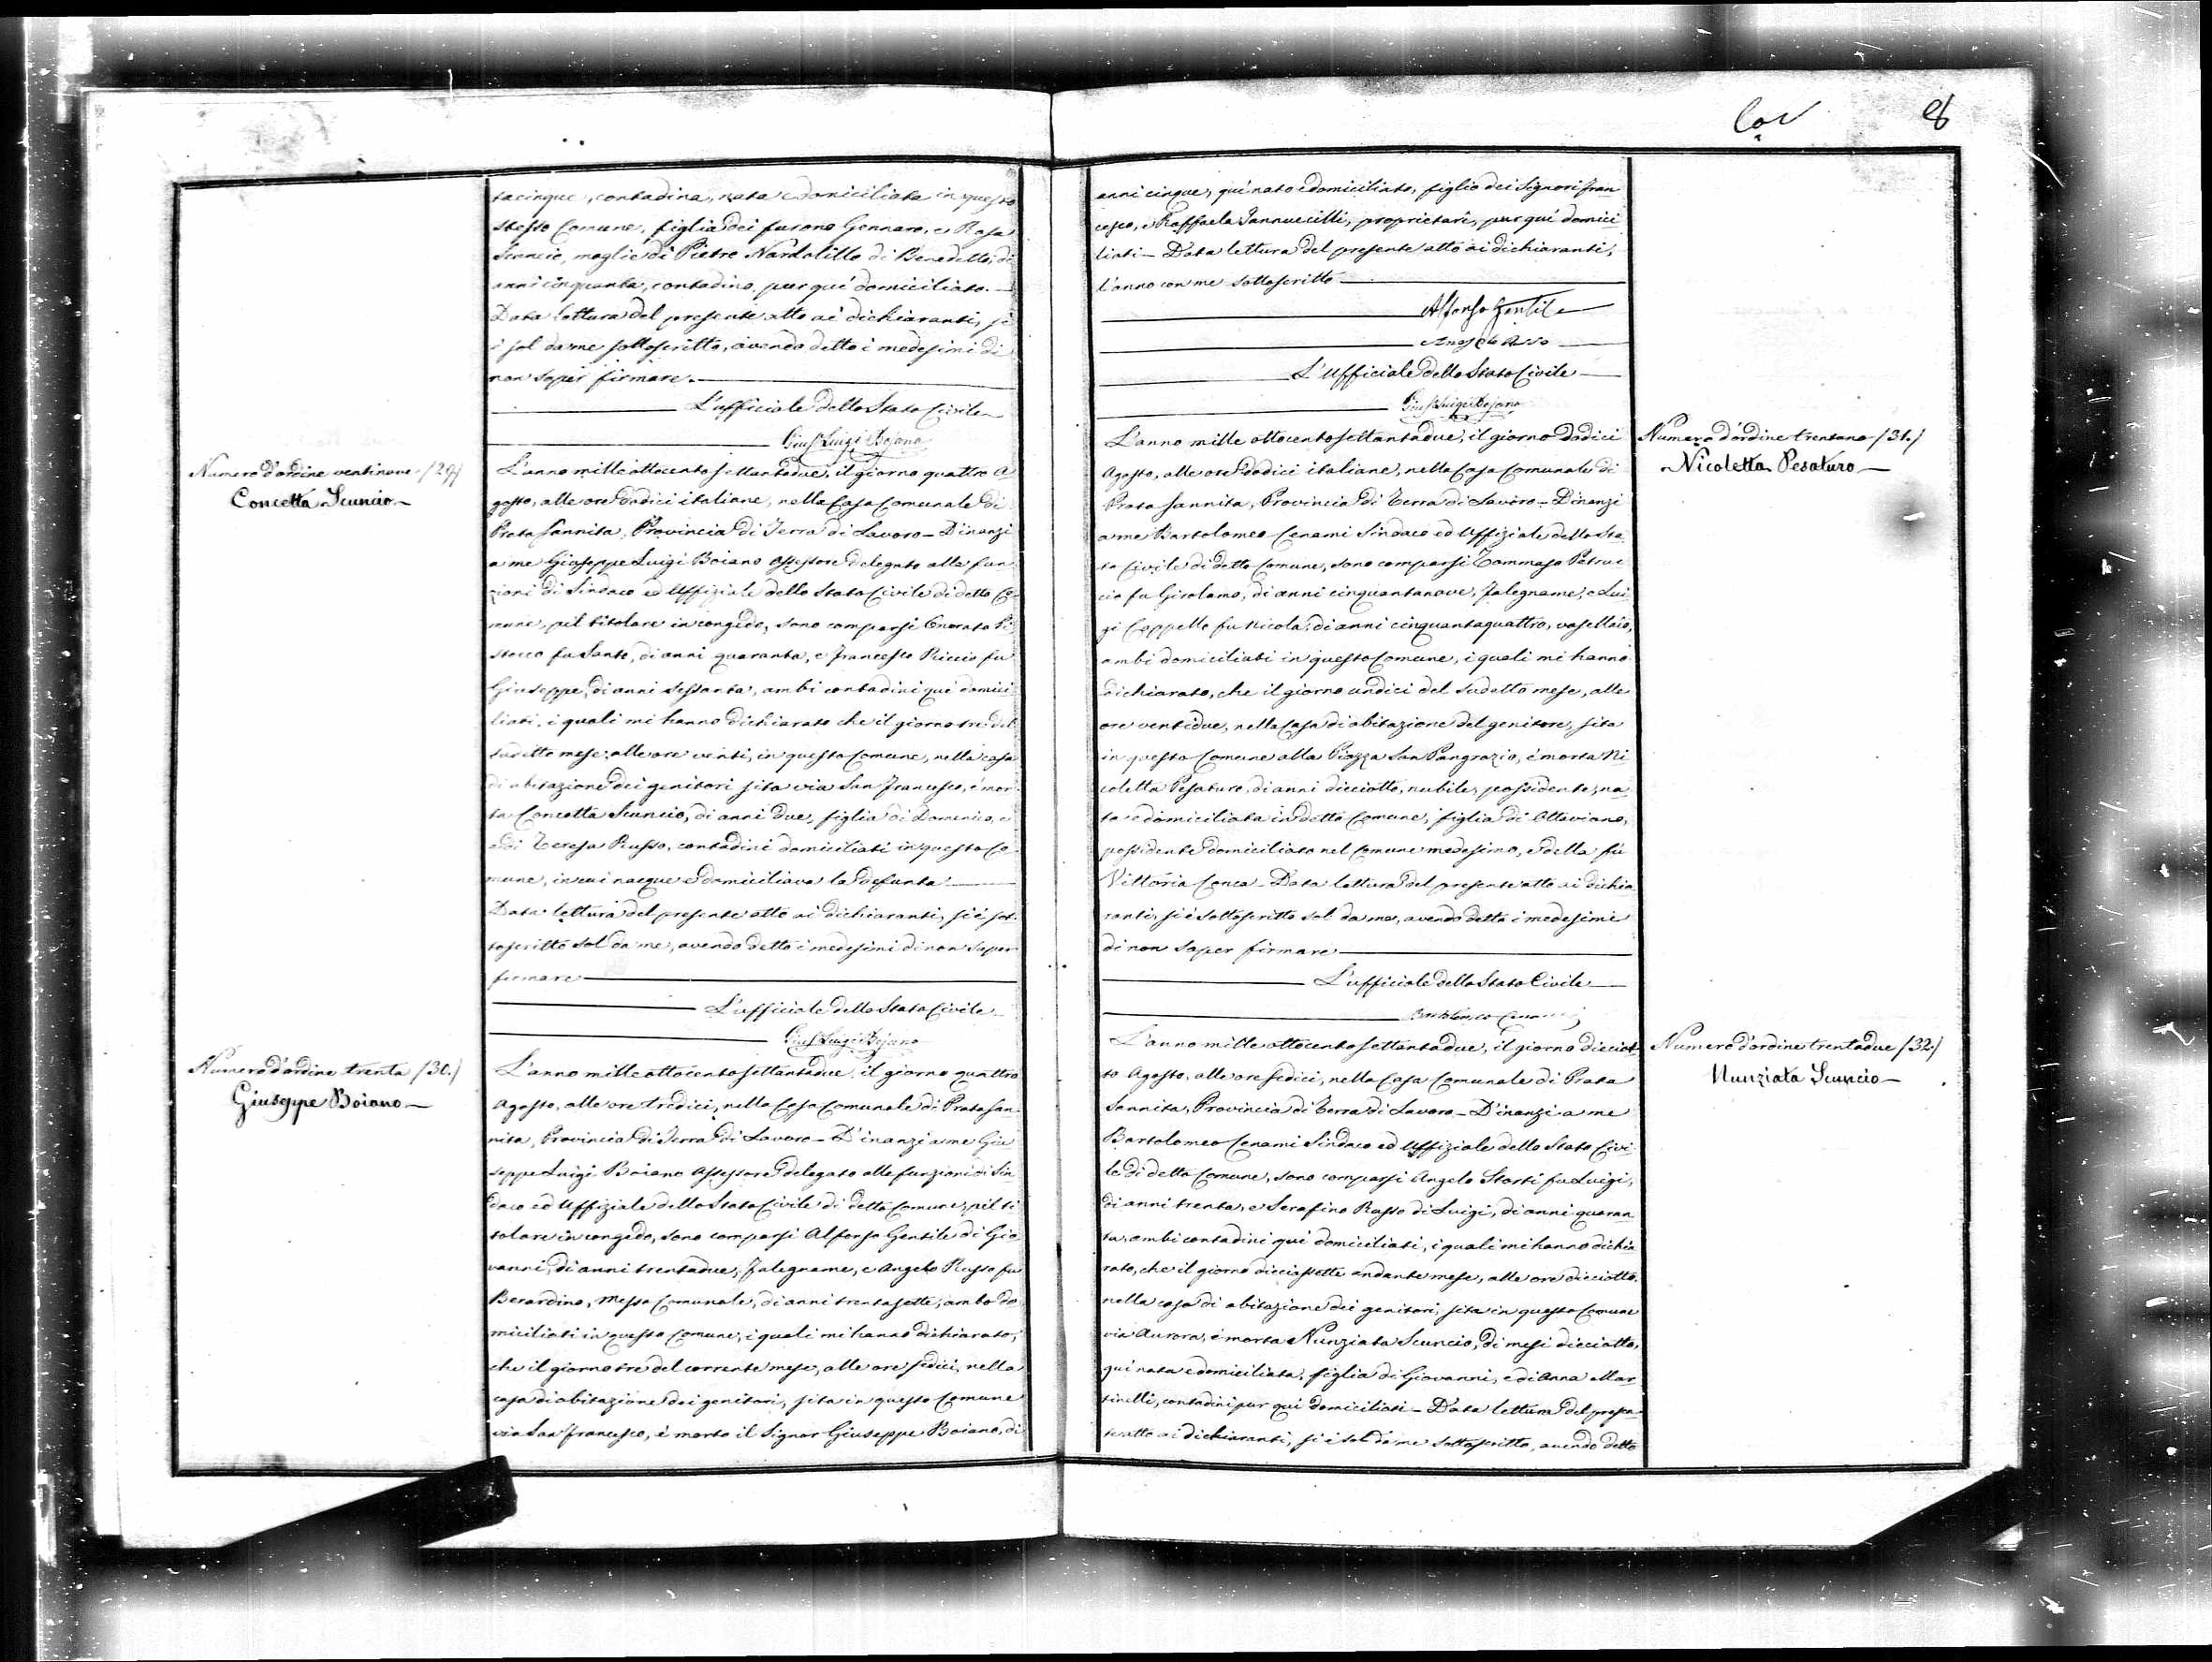 tacinque, contadina, nata e domiciliata in questo
stesso Comune, figlia dei furono Gennaro, e Rosa
Scuncio, moglie di Pietro Nardolillo di Benedetto, di
anni cinquanta, contadino, pur qui domiciliato. —
Data lettura del presente atto ai dichiaranti, si
è sol da me sottoscritto, avendo detto i medesimi di
non saper firmare. —
L'ufficiale dello Stato Civile
Gius. Luigi Bojano
Numero d'ordine ventinove /29/
Concetta Scuncio —
L'anno mille ottocento settantadue, il giorno quattro A
gosto, alle ore dodici italiane, nella Casa Comunale di
Prata Sannita, Provincia di Terra di Lavoro — Dinanzi
a me Giuseppe Luigi Boiano Assessore delegato alle fun
zioni di Sindaco ed Uffiziale dello Stato Civile di detto Co
mune, pel titolare in congedo, sono comparsi Onorato Pi
stocco fu Sante, di anni quaranta, e Francesco Riccio fu
Giuseppe, di anni sessanta, ambi contadini qui domici
liati, i quali mi hanno dichiarato che il giorno tre del
sudetto mese, alle ore venti, in questo Comune, nella casa
di abitazione dei genitori sita via San Francesco, è mor
ta Concetta Scuncio, di anni due, figlia di Domenico, e
di Teresa Russo, contadini domiciliati in questo Co
mune, in cui nacque e domiciliava la defunta —
Data lettura del presente atto ai dichiaranti, si è sot
toscritto sol da me, avendo detto i medesimi di non saper
firmare —
L'ufficiale dello Stato Civile
Gius. Luigi Bojano
Numero d'ordine trenta /30./
Giuseppe Boiano —
L'anno mille ottocento settantadue, il giorno quattro
Agosto, alle ore tredici, nella Casa Comunale di Prata San
nita, Provincia di Terra di Lavoro — D'inanzi a me Giu
seppe Luigi Boiano Assessore delegato alle funzioni di Sin
daco ed Uffiziale dello Stato Civile di detto Comune, pel ti
tolare in congedo, sono comparsi Alfonso Gentile di Gio
vanni, di anni trentadue, falegname, e Angelo Russo fu
Berardino, Messo Comunale, di anni trentasette, ambo do
miciliati in questo Comune, i quali mi hanno dichiarato,
che il giorno tre del corrente mese, alle ore sedici, nella
casa di abitazione dei genitori, sita in questo Comune
via San Francesco, è morto il Signor Giuseppe Boiano, di
8
anni cinque, qui nato e domiciliato, figlio dei Signori Fran
cesco, e Raffaela Iannuccilli, proprietari, pur qui domici
liati — Data lettura del presente atto ai dichiaranti,
l'anno con me sottoscritto —
Alfonso Gentile
Angelo Russo
L'Ufficiale dello Stato Civile —
Gius. Luigi Bojano
Numero d'ordine trentuno /31./
Nicoletta Pesaturo —
L'anno mille ottocento settantadue, il giorno dodici
Agosto, alle ore dodici italiane, nella Casa Comunale di
Prata Sannita, Provincia di Terra di Lavoro — Dinanzi
a me Bartolomeo Cenami Sindaco ed Uffiziale dello Sta
to Civile di detto Comune, sono comparsi Tommaso Petruc
cio fu Girolamo, di anni cinquantanove, falegname, e Lui
gi Coppelle fu Nicola, di anni cinquantaquattro, vasellaio,
ambi domiciliati in questo Comune, i quali mi hanno
dichiarato, che il giorno undici del sudetto mese, alle
ore ventidue, nella casa di abitazione del genitore, sita
in questo Comune alla Piazza San Pangrazio, è morta Ni
coletta Pesaturo, di anni dicciotto, nubile, possidente, na
ta e domiciliata in detto Comune, figlia di Ottaviano,
possidente domiciliato nel Comune medesimo, e della fu
Vittoria Conca — Data lettura del presente atto ai dichia
ranti, si è sottoscritto sol da me, avendo detto i medesimi
di non saper firmare —
L'ufficiale dello Stato Civile —
Bartolomeo Cenami
Numero d'ordine trentadue /32./
Nunziata Scuncio —
L'anno mille ottocento settantadue, il giorno dicciot
to Agosto, alle ore sedici, nella Casa Comunale di Prata
Sannita, Provincia di Terra di Lavoro — D'inanzi a me
Bartolomeo Cenami Sindaco ed Uffiziale dello Stato Civi
le di detto Comune, sono comparsi Angelo Storti fu Luigi,
di anni trenta, e Serafino Russo di Luigi, di anni quaran
ta, ambi contadini qui domiciliati, i quali mi hanno dichia
rato, che il giorno dicciassette andante mese, alle ore dicciotto,
nella casa di abitazione dei genitori, sita in questo Comune
via Aurora, è morta Nunziata Scuncio, di mesi dicciotto,
qui nata e domiciliata, figlia di Giovanni, e di Anna Mar
tinelli, contadini pur qui domiciliati — Data lettura del presen
te atto ai dichiaranti, si è sol da me sottoscritto, avendo detto